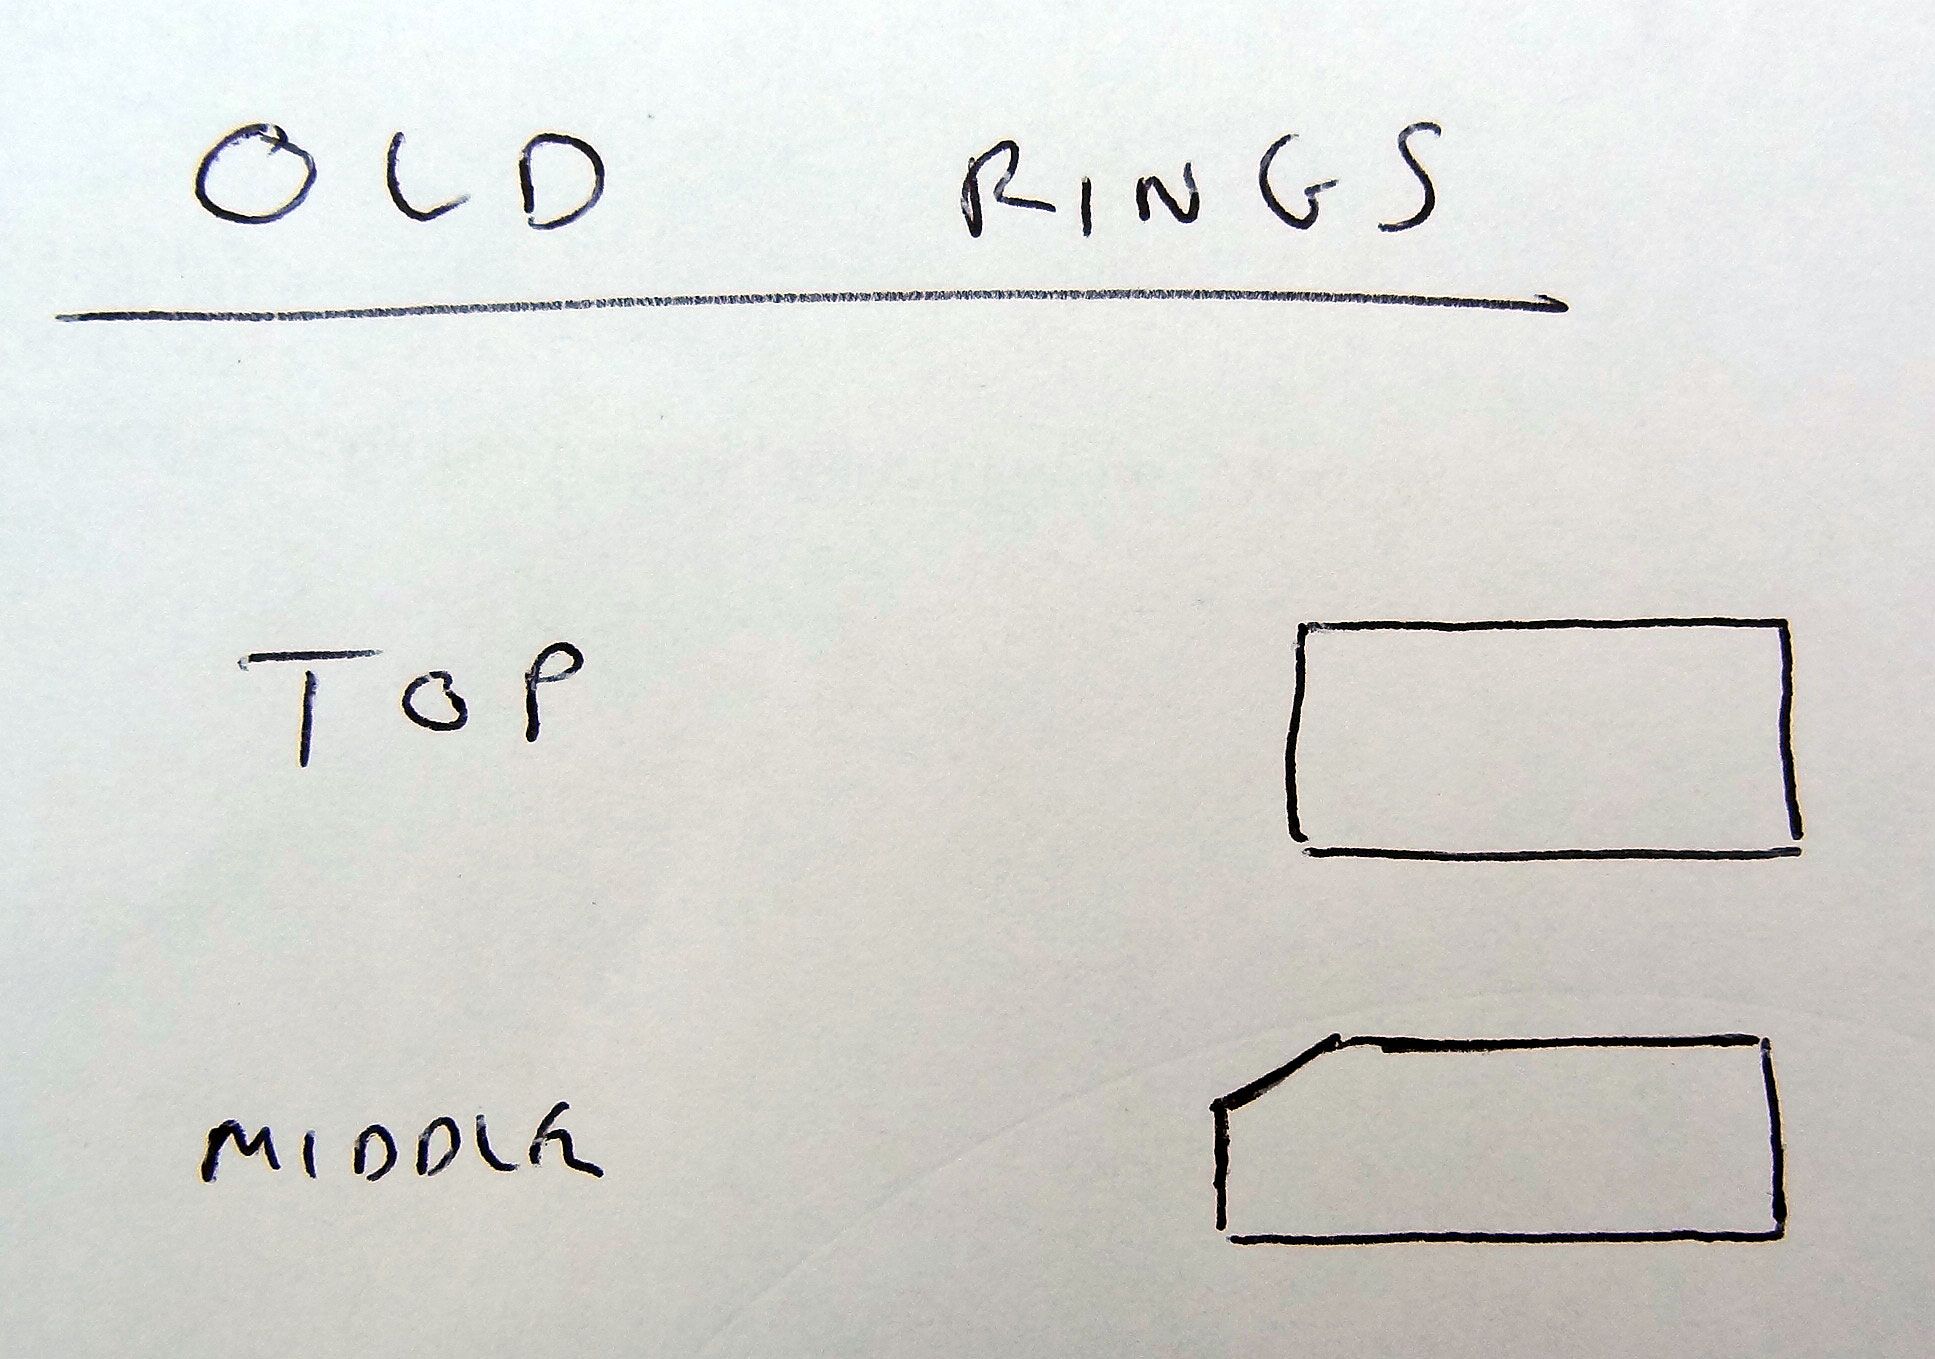 OLD RINGS
TOP
MIDDLE